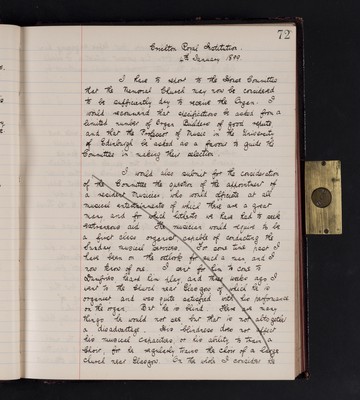 72
Crichton Royal Institution.
4th January 1899.
I have to report to the House Committee
that the Memorial Church may now be considered
to be sufficiently dry to receive the Organ. I
would recommend that specifications be asked from a
limited number of Organ Builders of good repute
and that the Professor of Music in the University
of Edinburgh be asked as a favour to guide the
Committee in making their selection.
I would also submit for the consideration
of the Committee the question of the appointment of
a resident Musician who would officiate at all
musical entertainments of which there are a great
many and for which hitherto we have had to seek
extraneous aid. The musician would require to be
a first class organist capable of conducting the
Sunday musical services. For some time past I
have been on the outlook for such a man and I
now know of one. I sent for him to come to
Dumfries heard him play, and three weeks ago I
went to the Church near Glasgow of which he is
organist and was quite satisfied with his performance
on the organ. But he is blind. There are many
things he would not see but that is not altogether
a disadvantage. His blindness does not affect
his musical capacities, or his ability to train a
choir, for he regularly trains the choir of a large
church near Glasgow. On the whole I consider his